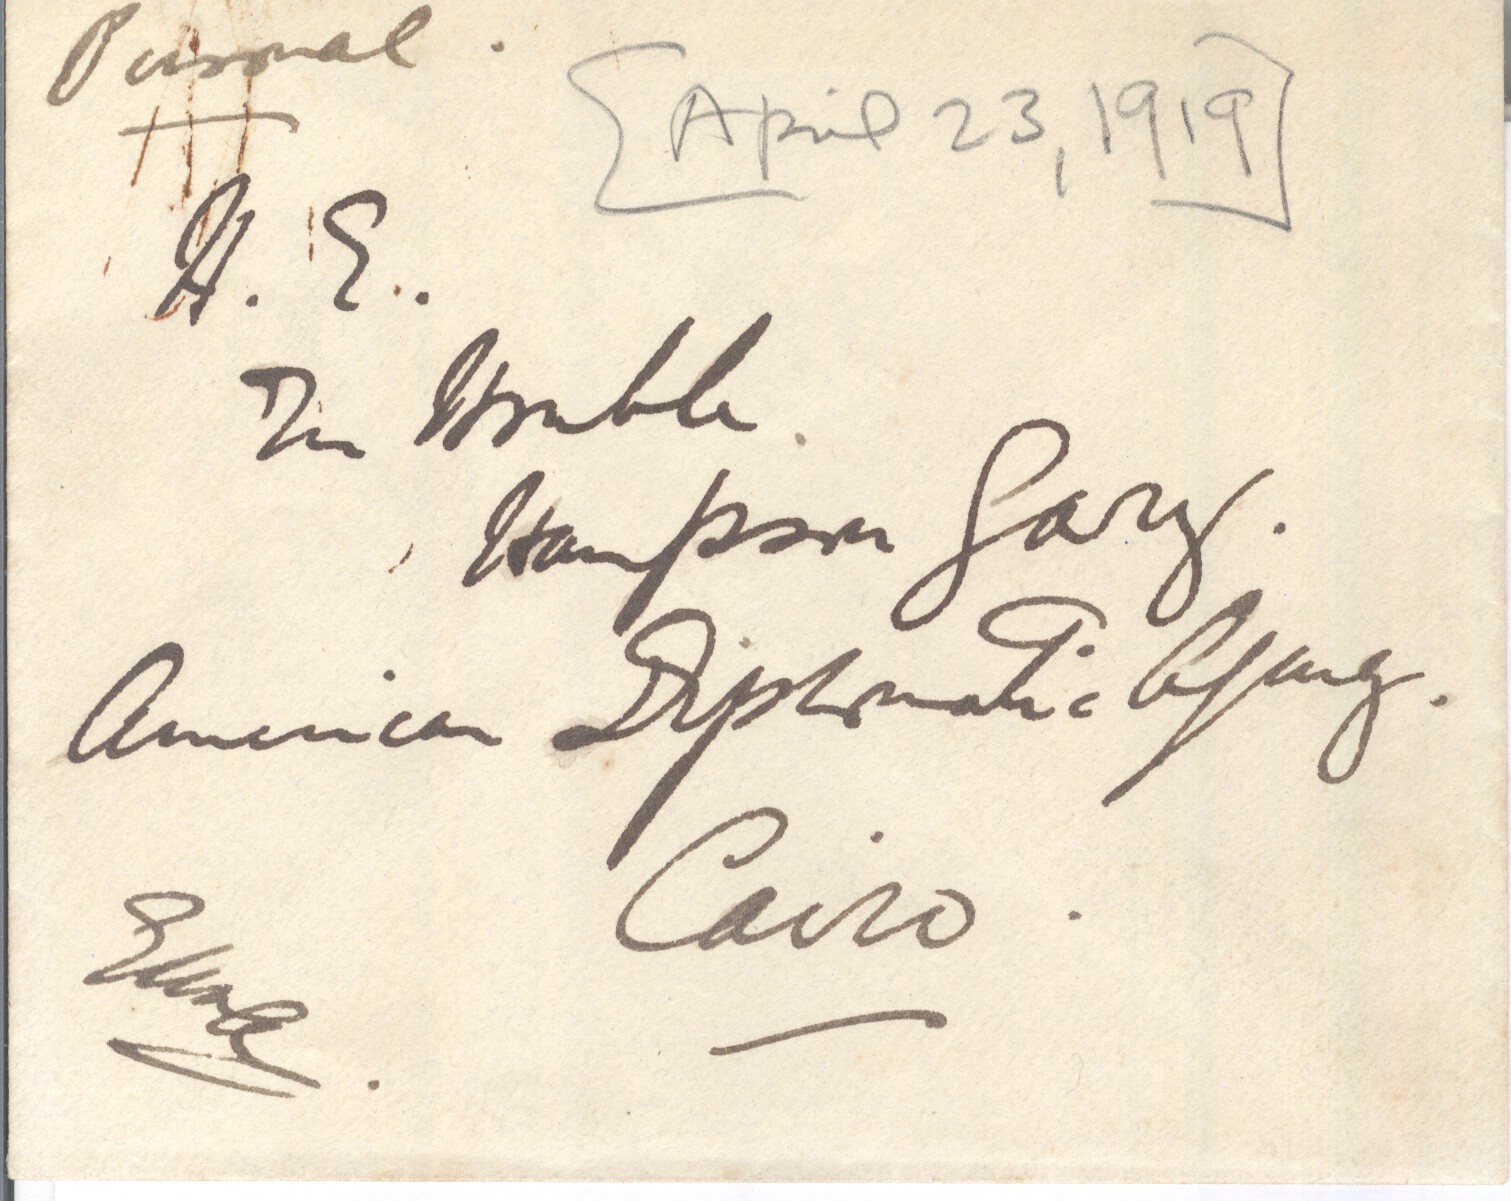 Personal.
[April 23, 1919]
H. E.
The Honble.
Hampson Gary.
American Diplomatic Agency.
Cairo.